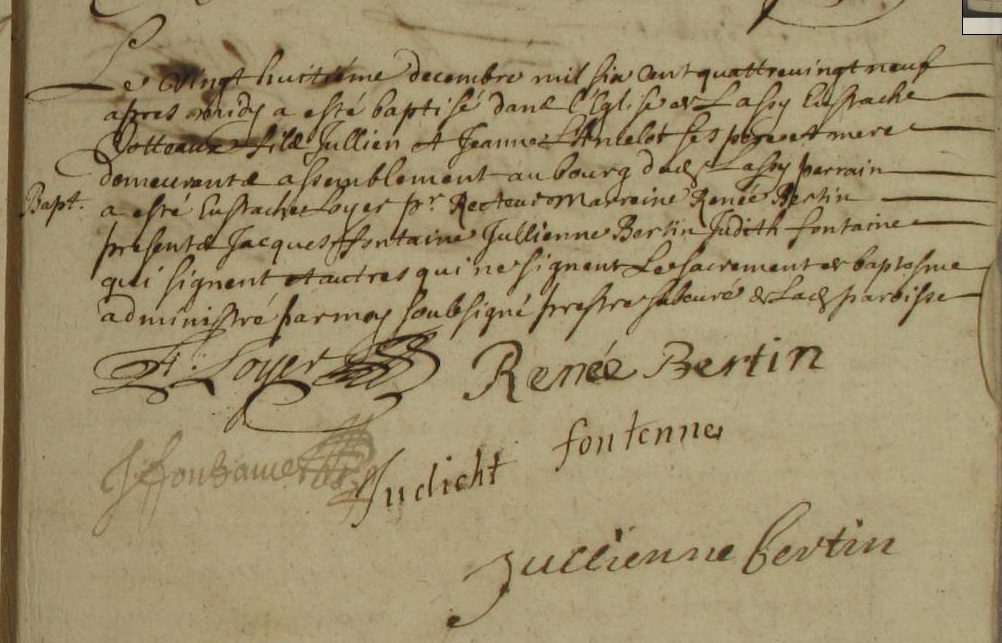 Le vingt huitiéme decembre mil six cent quattrevingt neuf
apres midy a esté baptisé dans l'Eglise de Lassy Eustache
Botteaux fils Jullien et Jeanne Lancelot ses pere et mere
demeurants assemblement au bourg dud Lassy parrain
Bapt. a esté Eustache Loyer pr. Recteur Marreine Renée Bertin
presents Jacques ffontaine Jullienne Bertin Judith fontaine
qui signent et autres qui ne signent Le sacrement de baptesme
administré par moy soubsigné prestre subcuré de Lad paroisse
Loyer Renée Bertin
J ffontaine Judicht fontenne
Jullienne bertin